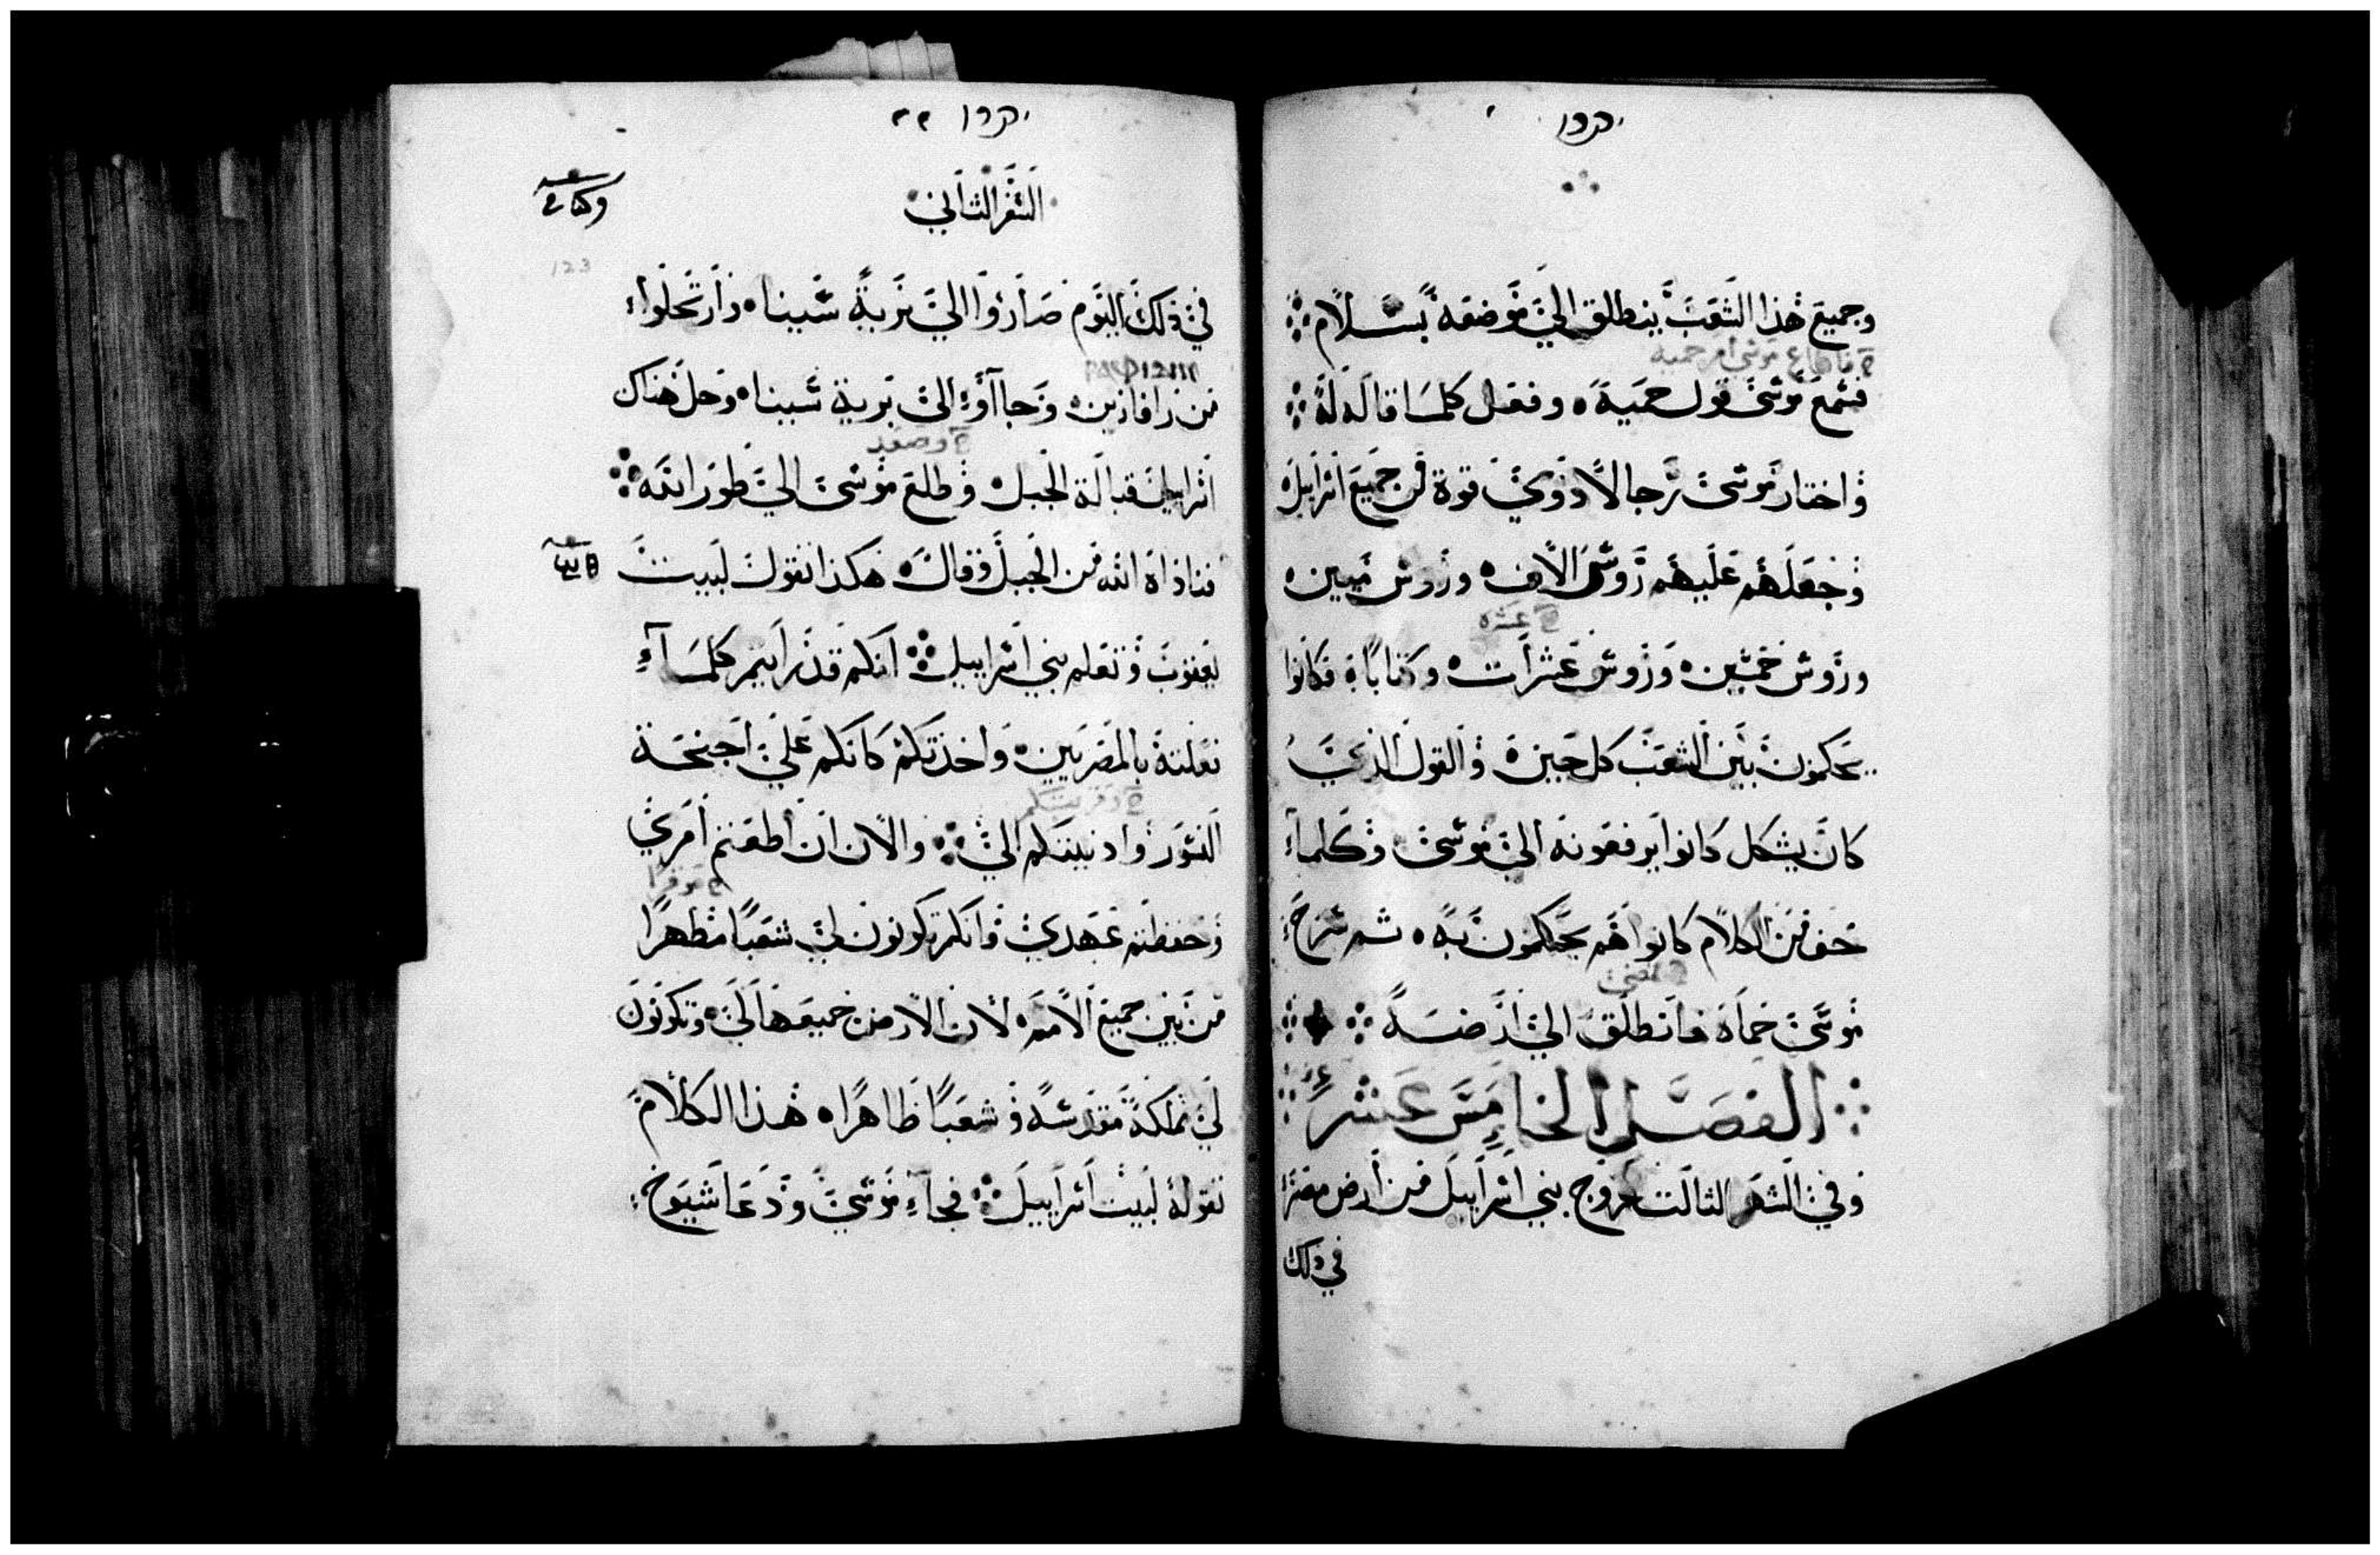 וجميع هذا الشعب ينطلق الي موضعه بسلام
فاطاع موسى امر حميه
فسمع موسى قول حميه وفعل كلما قاله له
واختار موسى رجالا ذوي قوة من جميع اسراييل
وجعلهم عليهم روسى الاف وروس ميين
عشره
وروس خمسين وروس عشرات وكتابا فكانوا
يحكمون بين الشعب كل حين والقول الذي
كان يشكل كانوا يرفعونه الي موسى وكلما
خف من الكلام كانوا هم يحكمون به ثم سرح
فمضى
موسى حماه فانطلق الي ارضه
الفصل الخامس عشر
وفي الشهر الثالت لخروج بني اسراييل من ارض مصر
في ذلك
السفر الثاني
123
في ذلك اليوم صاروا الي برية سينا وارتحلوا
من رافادين وجاآوا الى برية سينا وحل هناك
وصعد
اسراييل قبالة الجبل وطلع موسى الي طور الله
فناداه الله من الجبل وقال هكذا تقول لبيت
يعقوب وتعلم بني اسراييل انكم قد رايتم كلما
فعلته بالمصريين واخذتكم كانكم علي اجنحة
وقربتكم
النسور وادنيتكم الي والان ان اطعتم امري
موقرا
وحفظتم عهدي فانكم تكونون لي شعبا مطهرا
من بين جميع الامم لان الارض جميعها لي وتكونون
لي مملكة مقدسة وشعبا طاهرا هذا الكلام
تقوله لبيت اسراييل فجاء موسى ودعا شيوخ